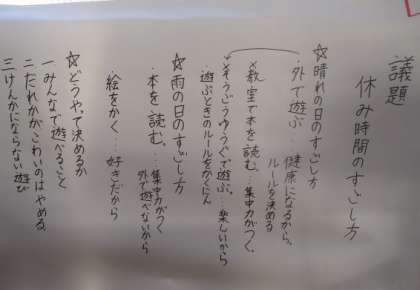 議題
休み時間のすごし方
☆晴れの日のすごし方
・外で遊ぶ…健康になるから。
ルールを決める
×教室で本を読む。…集中力がつく。
×そうごうゆうぐで遊ぶ。…楽しいから
・遊ぶときのルールをかくにん
☆雨の日のすごし方
・本を読む。…集中力がつく
外で遊べないから
・絵をかく…好きだから
☆どうやって決めるか
一みんなで遊べること
二だれかがこわいのはやめる。
三けんかにならない遊び